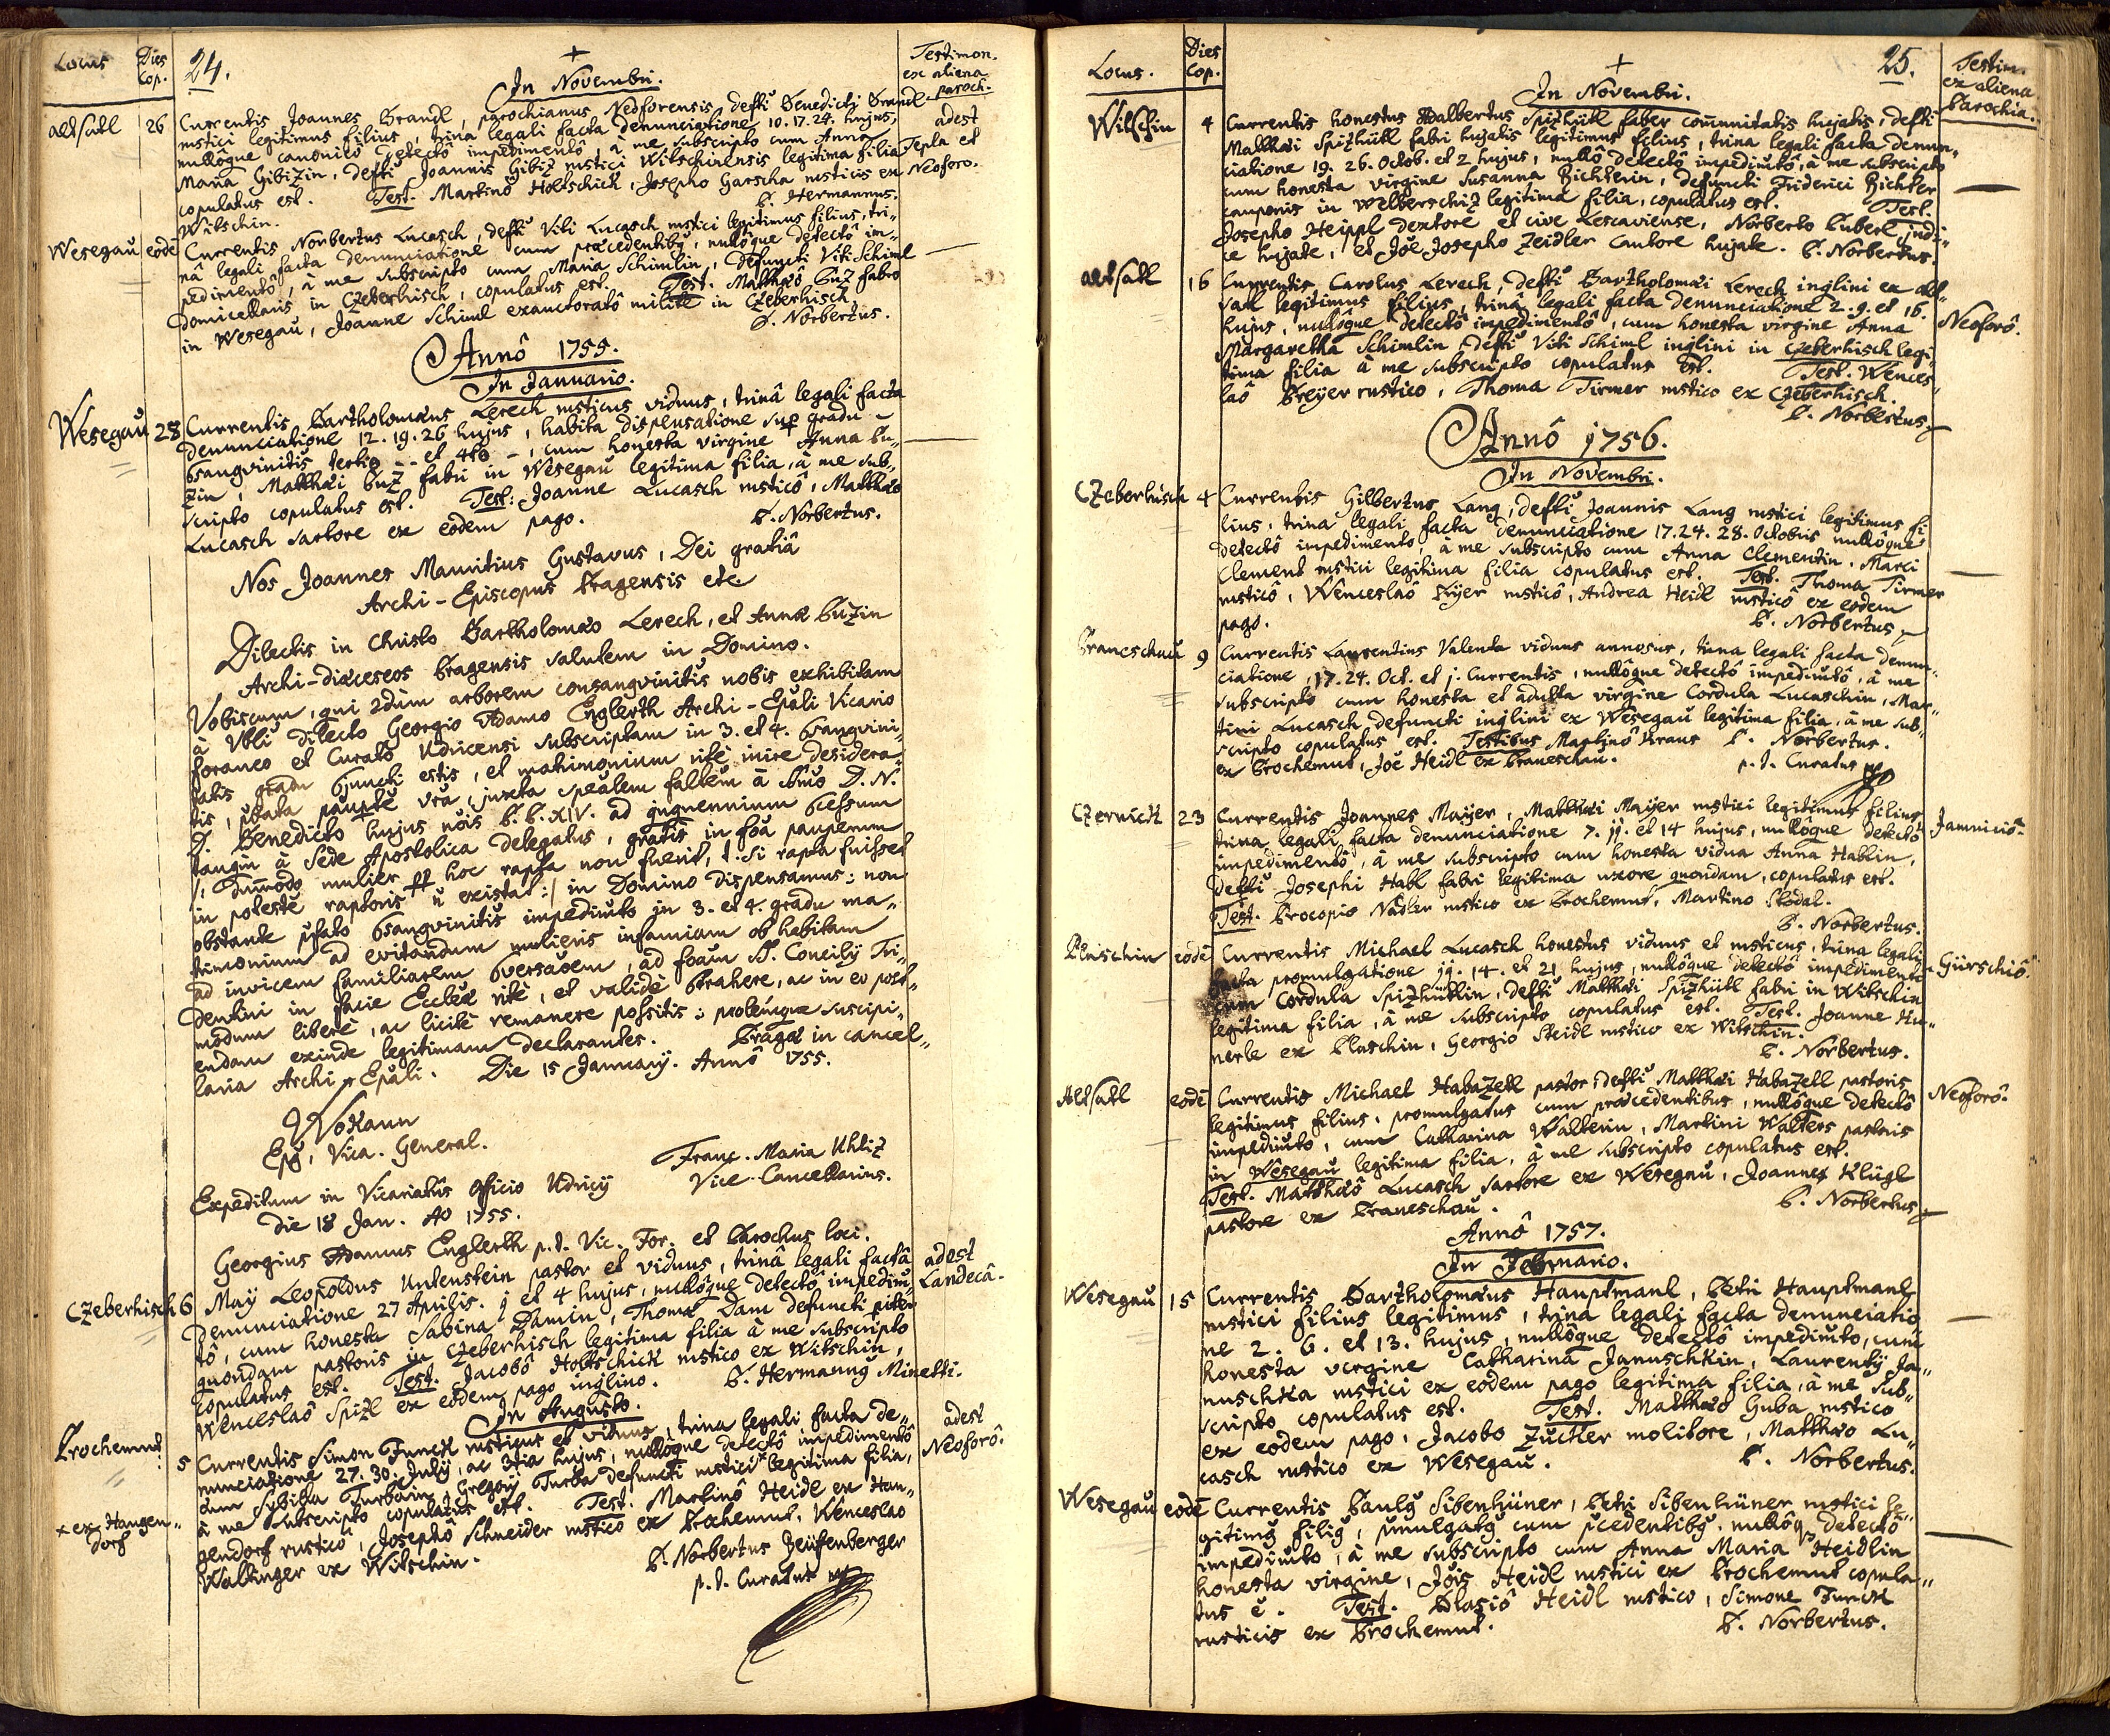 Locus
Dies Cop.
24.
In Novembri.
Testimon. ex aliena paroch.
altsatl 26 Currentis Joannes Brandl, parochianus Neoforensis, defti Benedicti Brandl
rustici legitimus filius, trina legali facta denunciatione 10. 17. 24. hujus, adest
nullôque canonicô detectô impedimentô, a me subscripto cum Anna Tepla et
Maria Gibizin, defti Joannis Gibiz rustici Witschinensis legitima filia Neoforo.
copulatus est. Test. Martino Holtschick, Josepho Garscha rusticis ex
Witschin. P. Hermannus.
Wesegau eodē Currentis Norbertus Lucasch, defti Viti Lucasch rustici legitimus filius, tri„
nâ legali facta denunciatione cum præcedentibꝰ, nullôque detectô im„
pedimentô, à me subscripto cum Maria Schimlin, defuncti Viti Schiml
Domicellaris in Czeberhisch, copulatus est. Test. Matthæô Buz fabro
in Wesegau, Joanne Schiml exauctoratô milite in Czeberhisch.
P. Norbertus.
Annô 1755.
In Januario.
Wesegau 28 Currentis Bartholomæus Lerech rusticus viduus, trinâ legali facta
denunciatione 12. 19. 26 hujus, habita dispensatione sup gradu
Csangvinitis tertio et 4to, cum honesta virgine Anna Bu„
zin, Matthæi Buz fabri in Wesegau legitima filia, à me sub„
scripto copulatus est. Test: Joanne Lucasch rusticô, Matthæo
Lucasch sartore ex eodem pago. P. Norbertus.
Nos Joannes Mauritius Gustavus, Dei gratiâ
Archi-Episcopus Pragensis etc
Dilectis in Christo Bartholomæo Lerech, et Annæ Buzin
Archi-diœceseos Pragensis salutem in Domino.
Vobiscum, qui 2dùm arborem consangvinitis nobis exhibitam
à Vbli dilecto Georgio Adamo Englerth Archi-Epāli Vicario
foraneo et Curatô Udricensi subscriptam in 3. et 4. Csangvini„
tatis gradu Cjuncti estis, et matrimonium ritè inire desidera„
tis, pbata paupte vrâ, juxta speālem faltēm à Smo D. N.
D. Benedicto hujus nōis P. P. XIV. ad qqnennium Ccessum
tanqm à Sede Apostolica delegatus, gratis in foa pauperum
/: dummodo mulier ppr hoc rapta non fuerit, t: si rapta fuisset
in potestē raptoris n̄ existat :/ in Domino dispensamus: non
obstante pfato Csangvinitis impedimto in 3. et 4. gradu ma„
trimonium ad evitandam mulieris infamiam ob habitam
ad invicem familiarem Cversaōem, ad foam S. Concilÿ Tri„
dentini in facie Ecclæ ritè, et validè Ctrahere, ac in eo post„
modum liberè, ac licitè remanere possitis: prolémque suscipi„
endam exinde legitimam declarantes. Pragæ in cancel„
laria Archi-Epāli. Die 15 Januarÿ. Annô 1755.
Wokaun
Epꝰ, Vica. General.
Franc. Maria Khliz
Vice-Cancellarius.
Expeditum in Vicariatûs officio Udricÿ
die 18 Jan. Ao 1755.
Georgius Adamus Englerth p.t. Vic. For. et Parochus loci.
Czeberhisch 6 Maÿ Leopoldus Untenstein pastor et viduus, trinâ legali factâ adest
denunciatione 27 Aprilis. j et 4 hujus, nullôque detectô impedim̄ Landecâ.
tô, cum honesta Sabina Damin, Thomæ Dam defuncti
quondam pastoris in Czeberhisch legitima filia à me subscripto
copulatus est. Test. Jacobô Holtschick rustico ex Witschin,
Wenceslaô Spizl ex eodem pago inqlino. P. Hermannꝰ Minetti.
In Augusto.
Prochemut 5 Currentis Simon Funck rusticus et viduus, trina legali facta de„ adest
nunciatione 27. 30. Julÿ, ac 3tia hujus, nullôque detectô impedimentô Neoforô.
cum Sybilla Turbain, Gregorÿ Turba defuncti rustici× legitima filia,
× ex Haugen„ dorf
à me subscripto copulatus est. Test. Martinô Heidl ex Hau„
gendorf rusticô, Josephô Schneider rusticô ex Prochemut, Wenceslao
Wallinger ex Witschin. P. Norbertus Zeüssenberger
p. t. Curatus
Locus.
Dies Cop.
25.
In Novembri.
Testim. ex aliena Parochia.
Witschin 4 Currentis honestus Adalbertus Spizhütl faber com̄unitatis hujatis, defti
Matthæi Spizhütl fabri hujatis legitimus filius, trina legali facta denun„
ciatione 19. 26. Octob. et 2 hujus, nullô detectô impedimtô, à me subscripto
cum honesta virgine Susanna Richterin, defuncti Friderici Richter
cauponis in Welberschiz legitima filia, copulatus est. Test.
Josepho Heippl dextore et cive Lescaviense, Norberto Buberl judi„
ce hujate, et Joē Josepho Zeidler Cantore hujate. P. Norbertus.
altsatl 16 Currentis Carolus Lerech, defti Bartholomæi Lerech inqlini ex alt„
satl legitimus filius, trinâ legali facta denunciatione 2. 9. et 16.
hujus, nullôque detectô impedimentô, cum honesta virgine Anna Neoforô.
Margaretha Schimlin defti Viti Schiml inqlini in Czeberhisch legi„
tima filia à me subscripto copulatus est. Test. Wences„
laô Breÿer rustico, Thoma Tirmer rustico ex Czeberhisch.
P. Norbertus.
Annô 1756.
In Novembri.
Czeberhisch 4 Currentis Gilbertus Lang, defti Joannis Lang rustici legitimus fi
lius, trina legali facta denunciatione 17. 24. 28. Octobris nullôque
detectô impedimento, à me subscripto cum Anna Clementin, Marci
Clement rustici legitima filia copulatus est. Test. Thoma Tirmer
rusticô, Wenceslaô Prÿer rusticô, Andrea Heidl rusticô ex eodem
pago. P. Norbertus
Braneschau 9 Currentis Laurentius Valenta viduus annosus, trina legali facta denun„
ciatione, 17. 24. Oct. et j. Currentis, nullôque detectô impedimtô, à me
subscripto cum honesta et adulta virgine Cordula Lucaschin, Mar„
tini Lucasch defuncti inqlini ex Wesegau legitima filia, à me sub„
scripto copulatus est. Testibus Martinô Kraus P. Norbertus.
ex Prochemut, Joē Heidl ex Braneschau. p. t. Curatus
Czernick 23 Currentis Joannes Maÿer, Matthæi Maÿer rustici legitimus filius
trina legali facta denunciatione 7. jj. et 14 hujus, nullôque detectô Jamniciô.
impedimentô, à me subscripto cum honesta vidua Anna Hablin,
defti Josephi Habl fabri legitima uxore quondam, copulatus est.
Test. Procopio Nadler rustico ex Prochemut, Martino Skodal.
P. Norbertus.
Pluschin eodē Currentis Michael Lucasch honestus viduus et rusticus, trina legali
facta promulgatione jj. 14. et 21 hujus, nullôque detectô impedimento Gürschiô.
cum Cordula Spizhütlin, defti Matthæi Spizhütl fabri in Witschin
legitima filia, à me subscripto copulatus est. Test. Joanne Hu„
nerle ex Pluschin, Georgio Heidl rustico ex Witschin.
P. Norbertus.
Altsatl eodē Currentis Michael Habazell pastor, defti Matthæi Habazell pastoris Neoforô.
legitimus filius, promulgatus cum præcedentibus, nullôque detectô
impedimto, cum Catharina Walterin, Martini Walters pastoris
in Wesegau legitima filia, à me subscripto copulatus est.
Test. Matthæô Lucasch sartore ex Wesegau, Joannes Klügl
pastore ex Braneschau. P. Norbertus
Annô 1757.
In Februario.
Wesegau 15 Currentis Bartholomæus Hauptmanl, Petri Hauptmanl
rustici filius legitimus, trina legali facta denunciatio
ne 2. 6. et 13. hujus, nullôque detectô impedimto, cum
honesta virgine Catharina Januschkin, Laurentÿ Ja„
nuschka rustici ex eodem pago legitima filia, à me sub„
scripto copulatus est. Test. Matthæo Guba rustico
ex eodem pago, Jacobo Zuckler molitore, Matthæo Lu„
casch rustico ex Wesegau. P. Norbertus.
Wesegau eodē Currentis Paulꝰ Sibenhüner, Petri Sibenhüner rustici le„
gitimꝰ filiꝰ, pmulgatꝰ cum pcedentibꝰ, nullôq3 detectô
impedimto, à me subscripto cum Anna Maria Heidlin
honesta virgine, Jōis Heidl rustici ex Prochemut copula„
tus ē. Test. Blasiô Heidl rustico, Simone Funck
rusticis ex Prochemut. P. Norbertus.